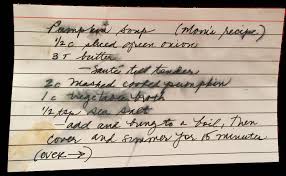 Pumpkin Soup (Mom's recipe)
1/2 c sliced green onion
3 T butter
—Sauté till tender
2c mashed cooked pumpkin
1 c vegetable broth
1/2 tsp sea salt
—add and bring to a boil, then
cover and simmer for 15 minutes
(over →)